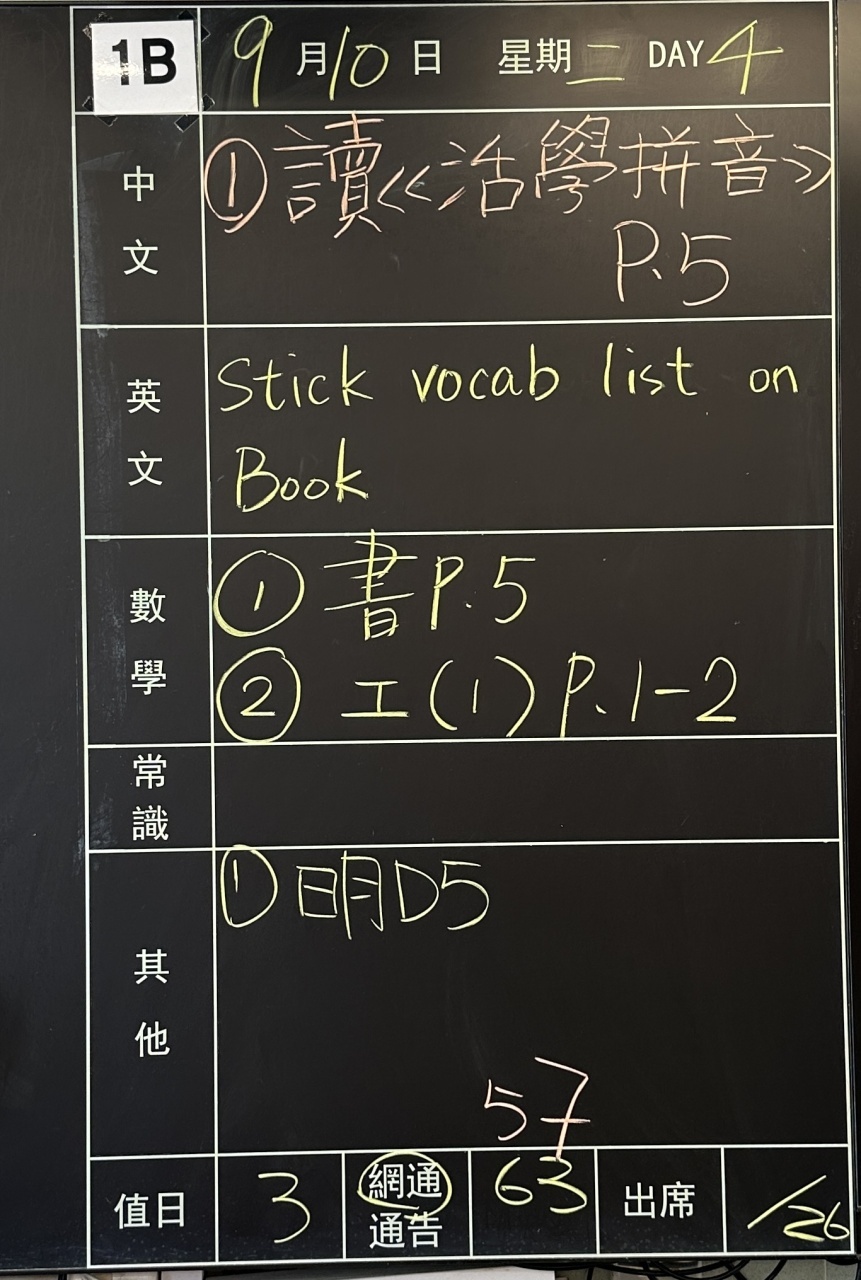 1B 9月10日 星期二 DAY 4
中文
①讀《活學拼音》
P.5
英文
Stick vocab list on
Book
數學
① 書P.5
② 工(1) P.1-2
常識
其他
① 明D5
57
值日 3 網通 通告 63 出席 /26